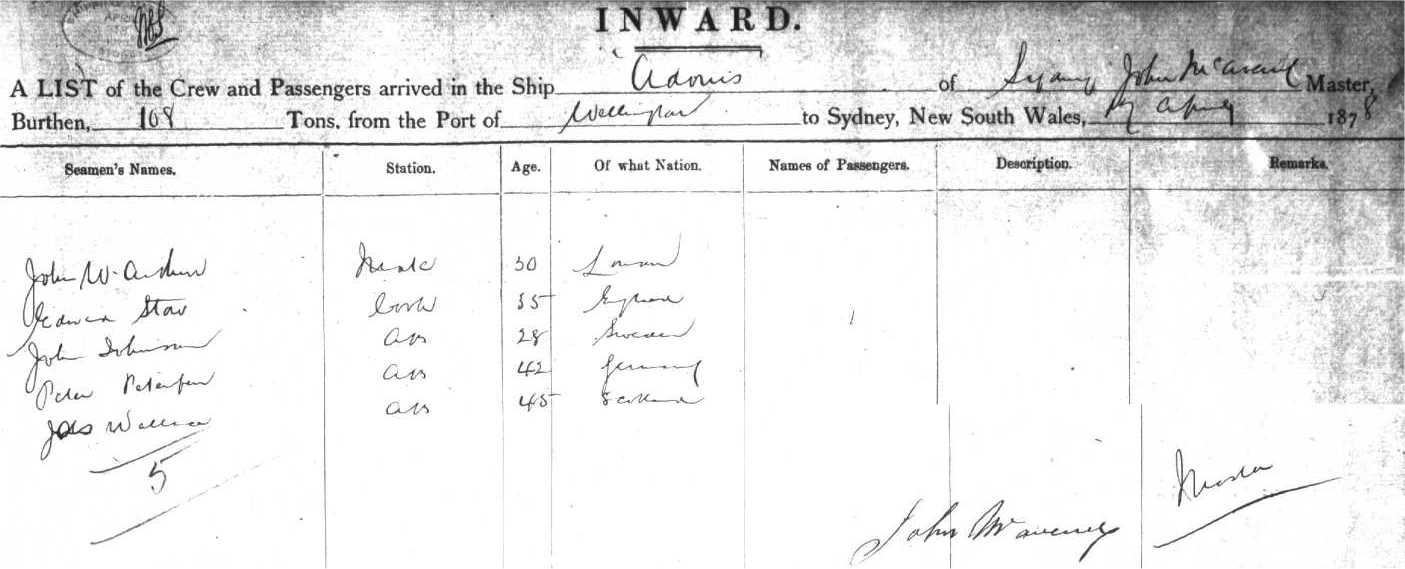 INWARD.
A LIST of the Crew and Passengers arrived in the Ship Adonis of Sydney John Master,
Burthen, 108 Tons, from the Port of Wellington to Sydney, New South Wales, April 1878
Seamen's Names. Station. Age. Of what Nation. Names of Passengers. Description. Remarks.
John Mate 30
Edward Cook 35 England
John Johnson AB 28 Sweden
Peter Petersen AB 42 Germany
Jas Wallace AB 45 Scotland
5
John Master